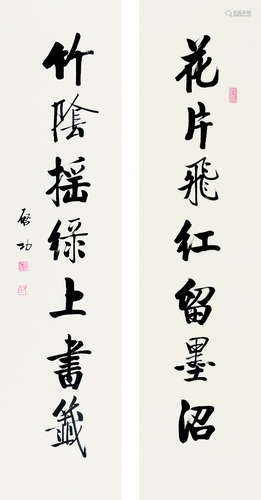 花片飛紅留墨沼
竹陰搖綠上書籤
啟功